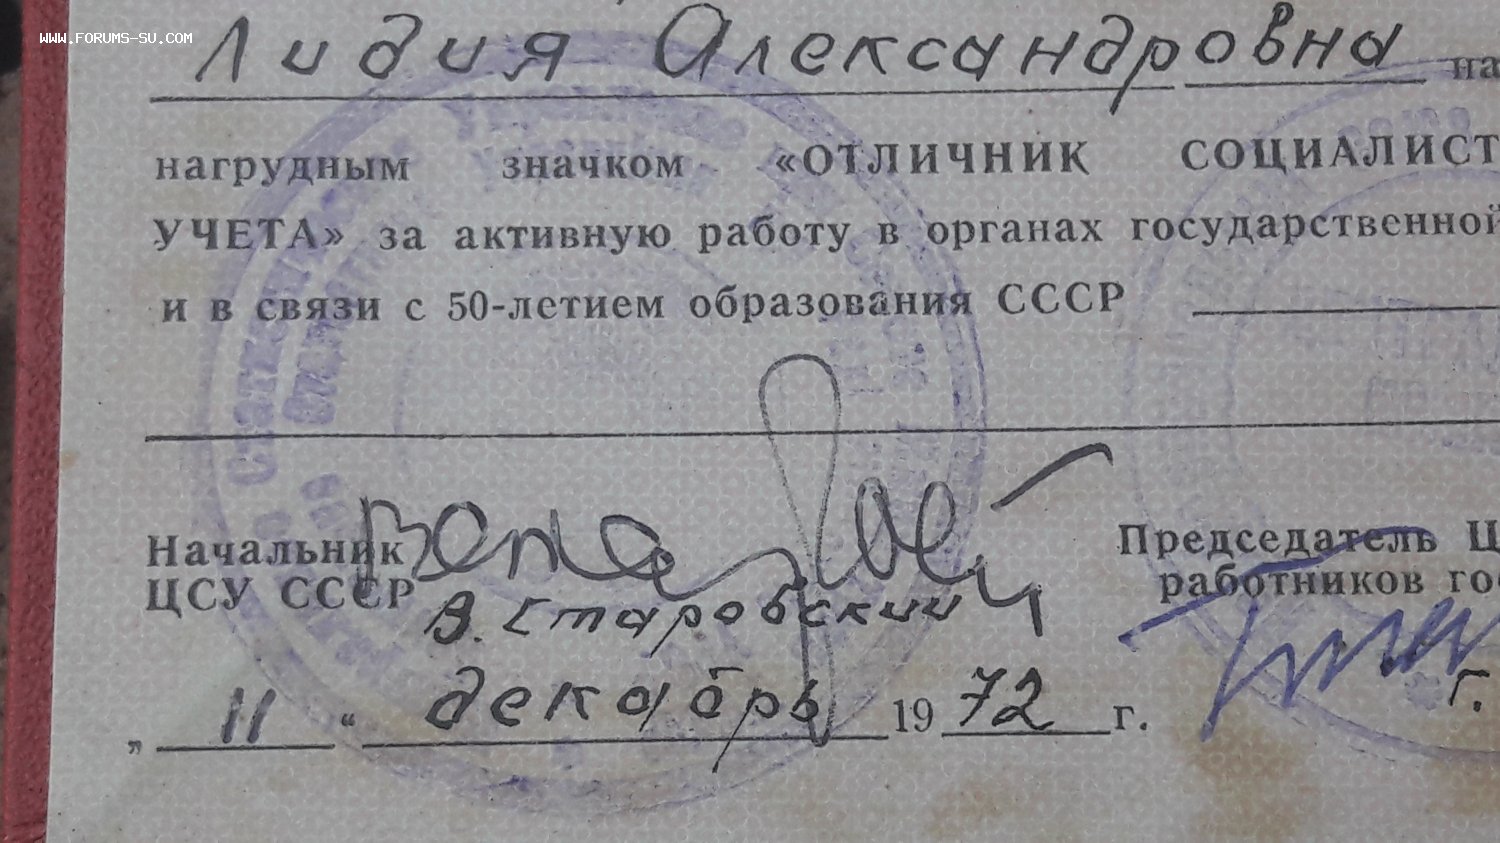 WWW.FORUMS-SU.COM
Лидия Александровна на
нагрудным значком «ОТЛИЧНИК СОЦИАЛИСТ
УЧЕТА» за активную работу в органах государственной
и в связи с 50-летием образования СССР
Начальник
ЦСУ СССР
В. Старовский
Председатель Ц
работников го
Г.
„ 11 “ декабрь 1972 г.